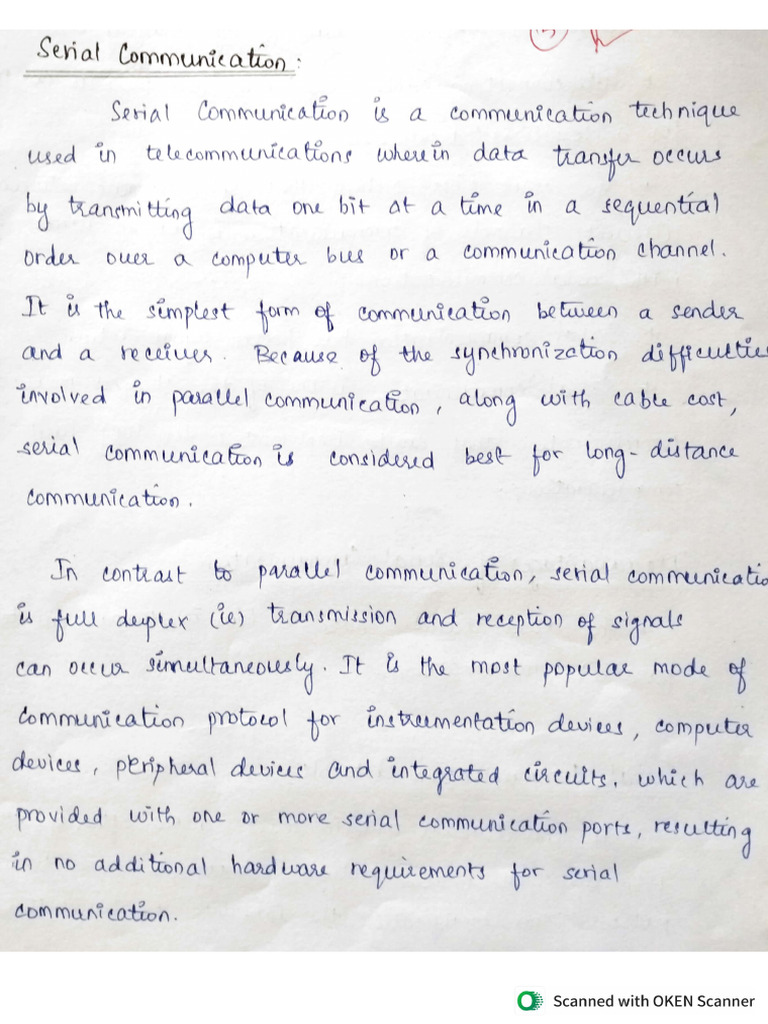 Serial Communication:
Serial Communication is a communication technique
used in telecommunications wherein data transfer occurs
by transmitting data one bit at a time in a sequential
order over a computer bus or a communication channel.
It is the simplest form of communication between a sender
and a receiver. Because of the synchronization difficultie
involved in parallel communication, along with cable cost,
serial communication is considered best for long-distance
communication.
In contrast to parallel communication, serial communicatio
is full duplex (ie) transmission and reception of signals
can occur simultaneously. It is the most popular mode of
communication protocol for instrumentation devices, computer
devices, peripheral devices and integrated circuits, which are
provided with one or more serial communication ports, resulting
in no additional hardware requirements for serial
communication.
Scanned with OKEN Scanner